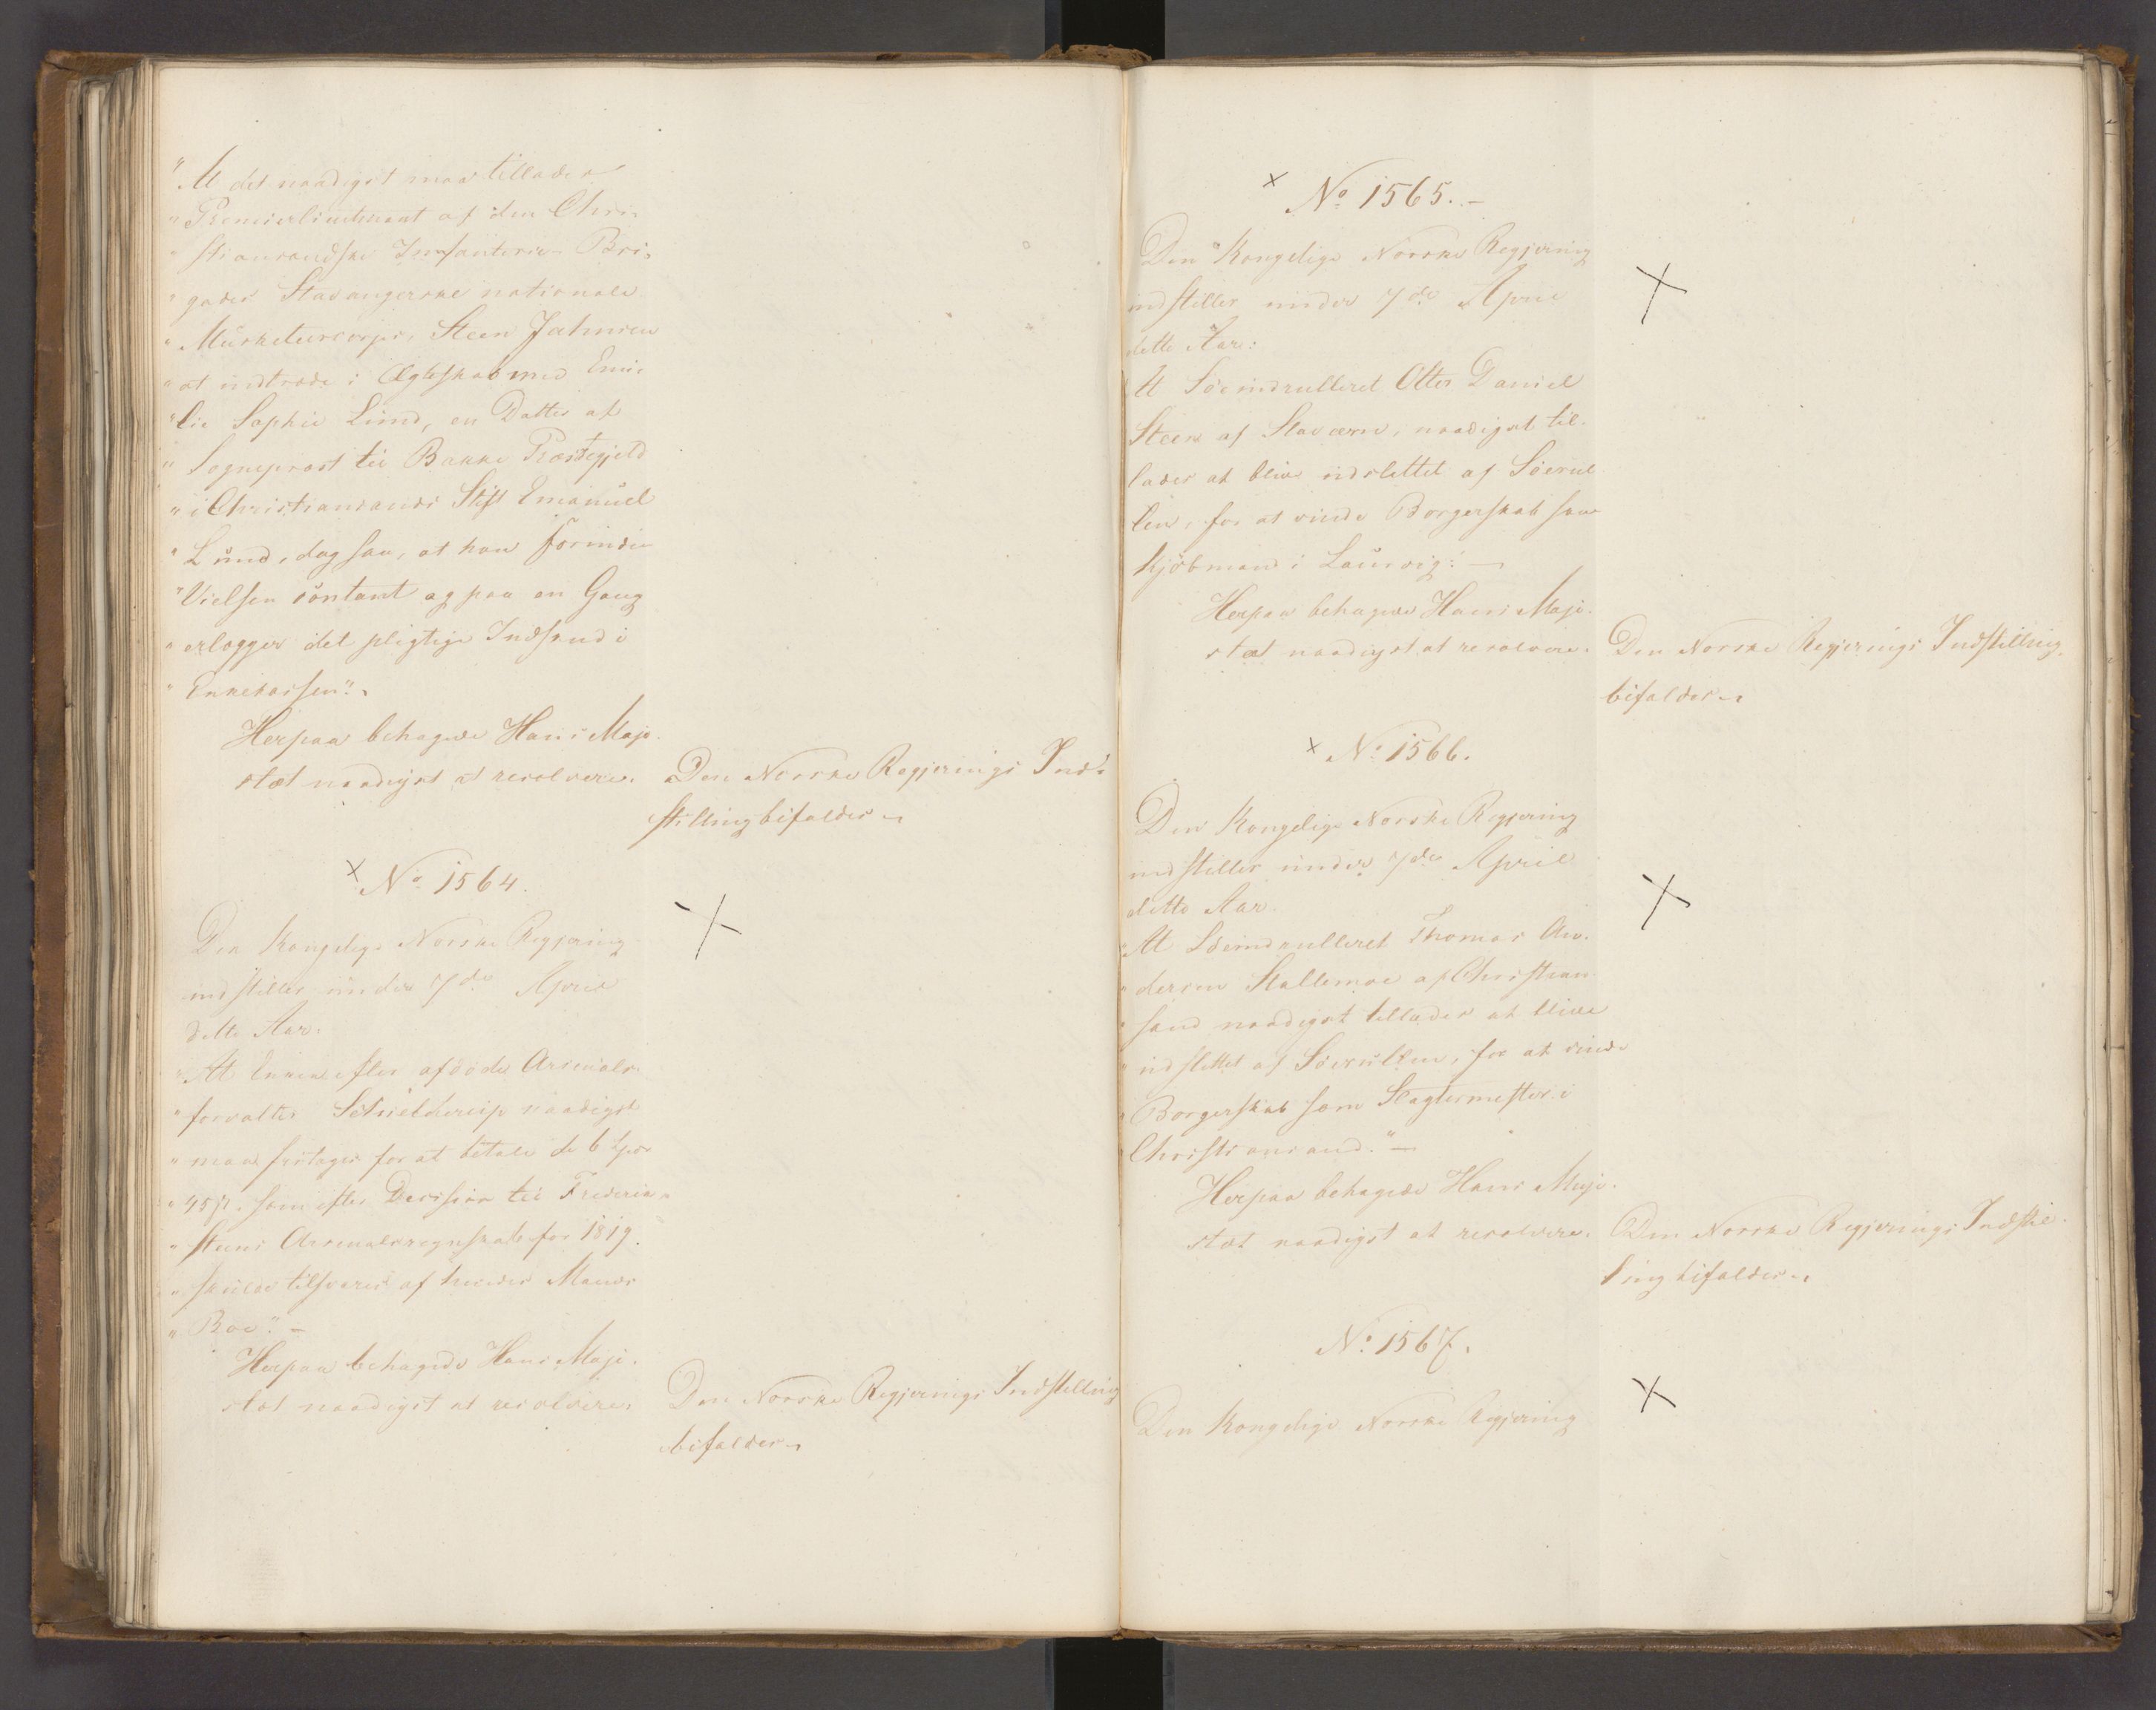 "At det naadigst maa tillades
"Premierlieutnant af den Chri-
"stiansandske Infanterie-Bri-
"gades Stavangerske nationale
"Musketeercorps, Steen Jahnsen
"at indtræde i Ægteskab med Emi-
"lie Sophie Lund, en Datter af
"Sogneprest til Bakke Præstegjeld
"i Christiansands Stift Emanuel
"Lund, dog saa, at han forinden
"Vielsen contant og paa en Gang
"erlægger det pligtige Indskud i
"Enkekassen".
Herpaa behagede Hans Maje-
stæt naadigst at resolvere.
Den Norske Regjerings Ind-
stilling bifaldes.
× No 1564.
Den Kongelige Norske Regjering
indstiller under 7de April
dette Aar:
"At Enken efter afdöde Arsenals-
"forvalter naadigst
"maa fritages for at betale de 6 Spdr
"45 s. som efter Decision til Frederik-
"steens Arsenalsregnskab for 1819
"skulde tilsvares af hendes Mands
"Boe". —
Herpaa behagede Hans Maje-
stæt naadigst at resolvere.
Den Norske Regjerings Indstilling
bifaldes.
× No 1565. —
Den Kongelige Norske Regjering
indstiller under 7de April
dette Aar:
At Söeindrulleret Otter Daniel
Steen af Staværn, naadigst til-
lades at blive udslettet af Söerul-
len, for at vinde Borgerskab som
Kjöbmand i Laurvig: —
Herpaa behagede Hans Maje-
stæt naadigst at resolvere.
Den Norske Regjerings Indstilling
bifaldes.
× No 1566.
Den Kongelige Norske Regjering
indstiller under 7de April
dette Aar.
"At Söeindrulleret Thomas An-
"dersen Stallemoe af Christian-
"sand naadigst tillades at blive
"udslettet af Söerullen, for at vinde
"Borgerskab som Slagtermester i
Christiansand." —
Herpaa behagede Hans Maje-
stæt naadigst at resolvere.
Den Norske Regjerings Indstil-
ling bifaldes.
No 1567.
Den Kongelige Norske Regjering